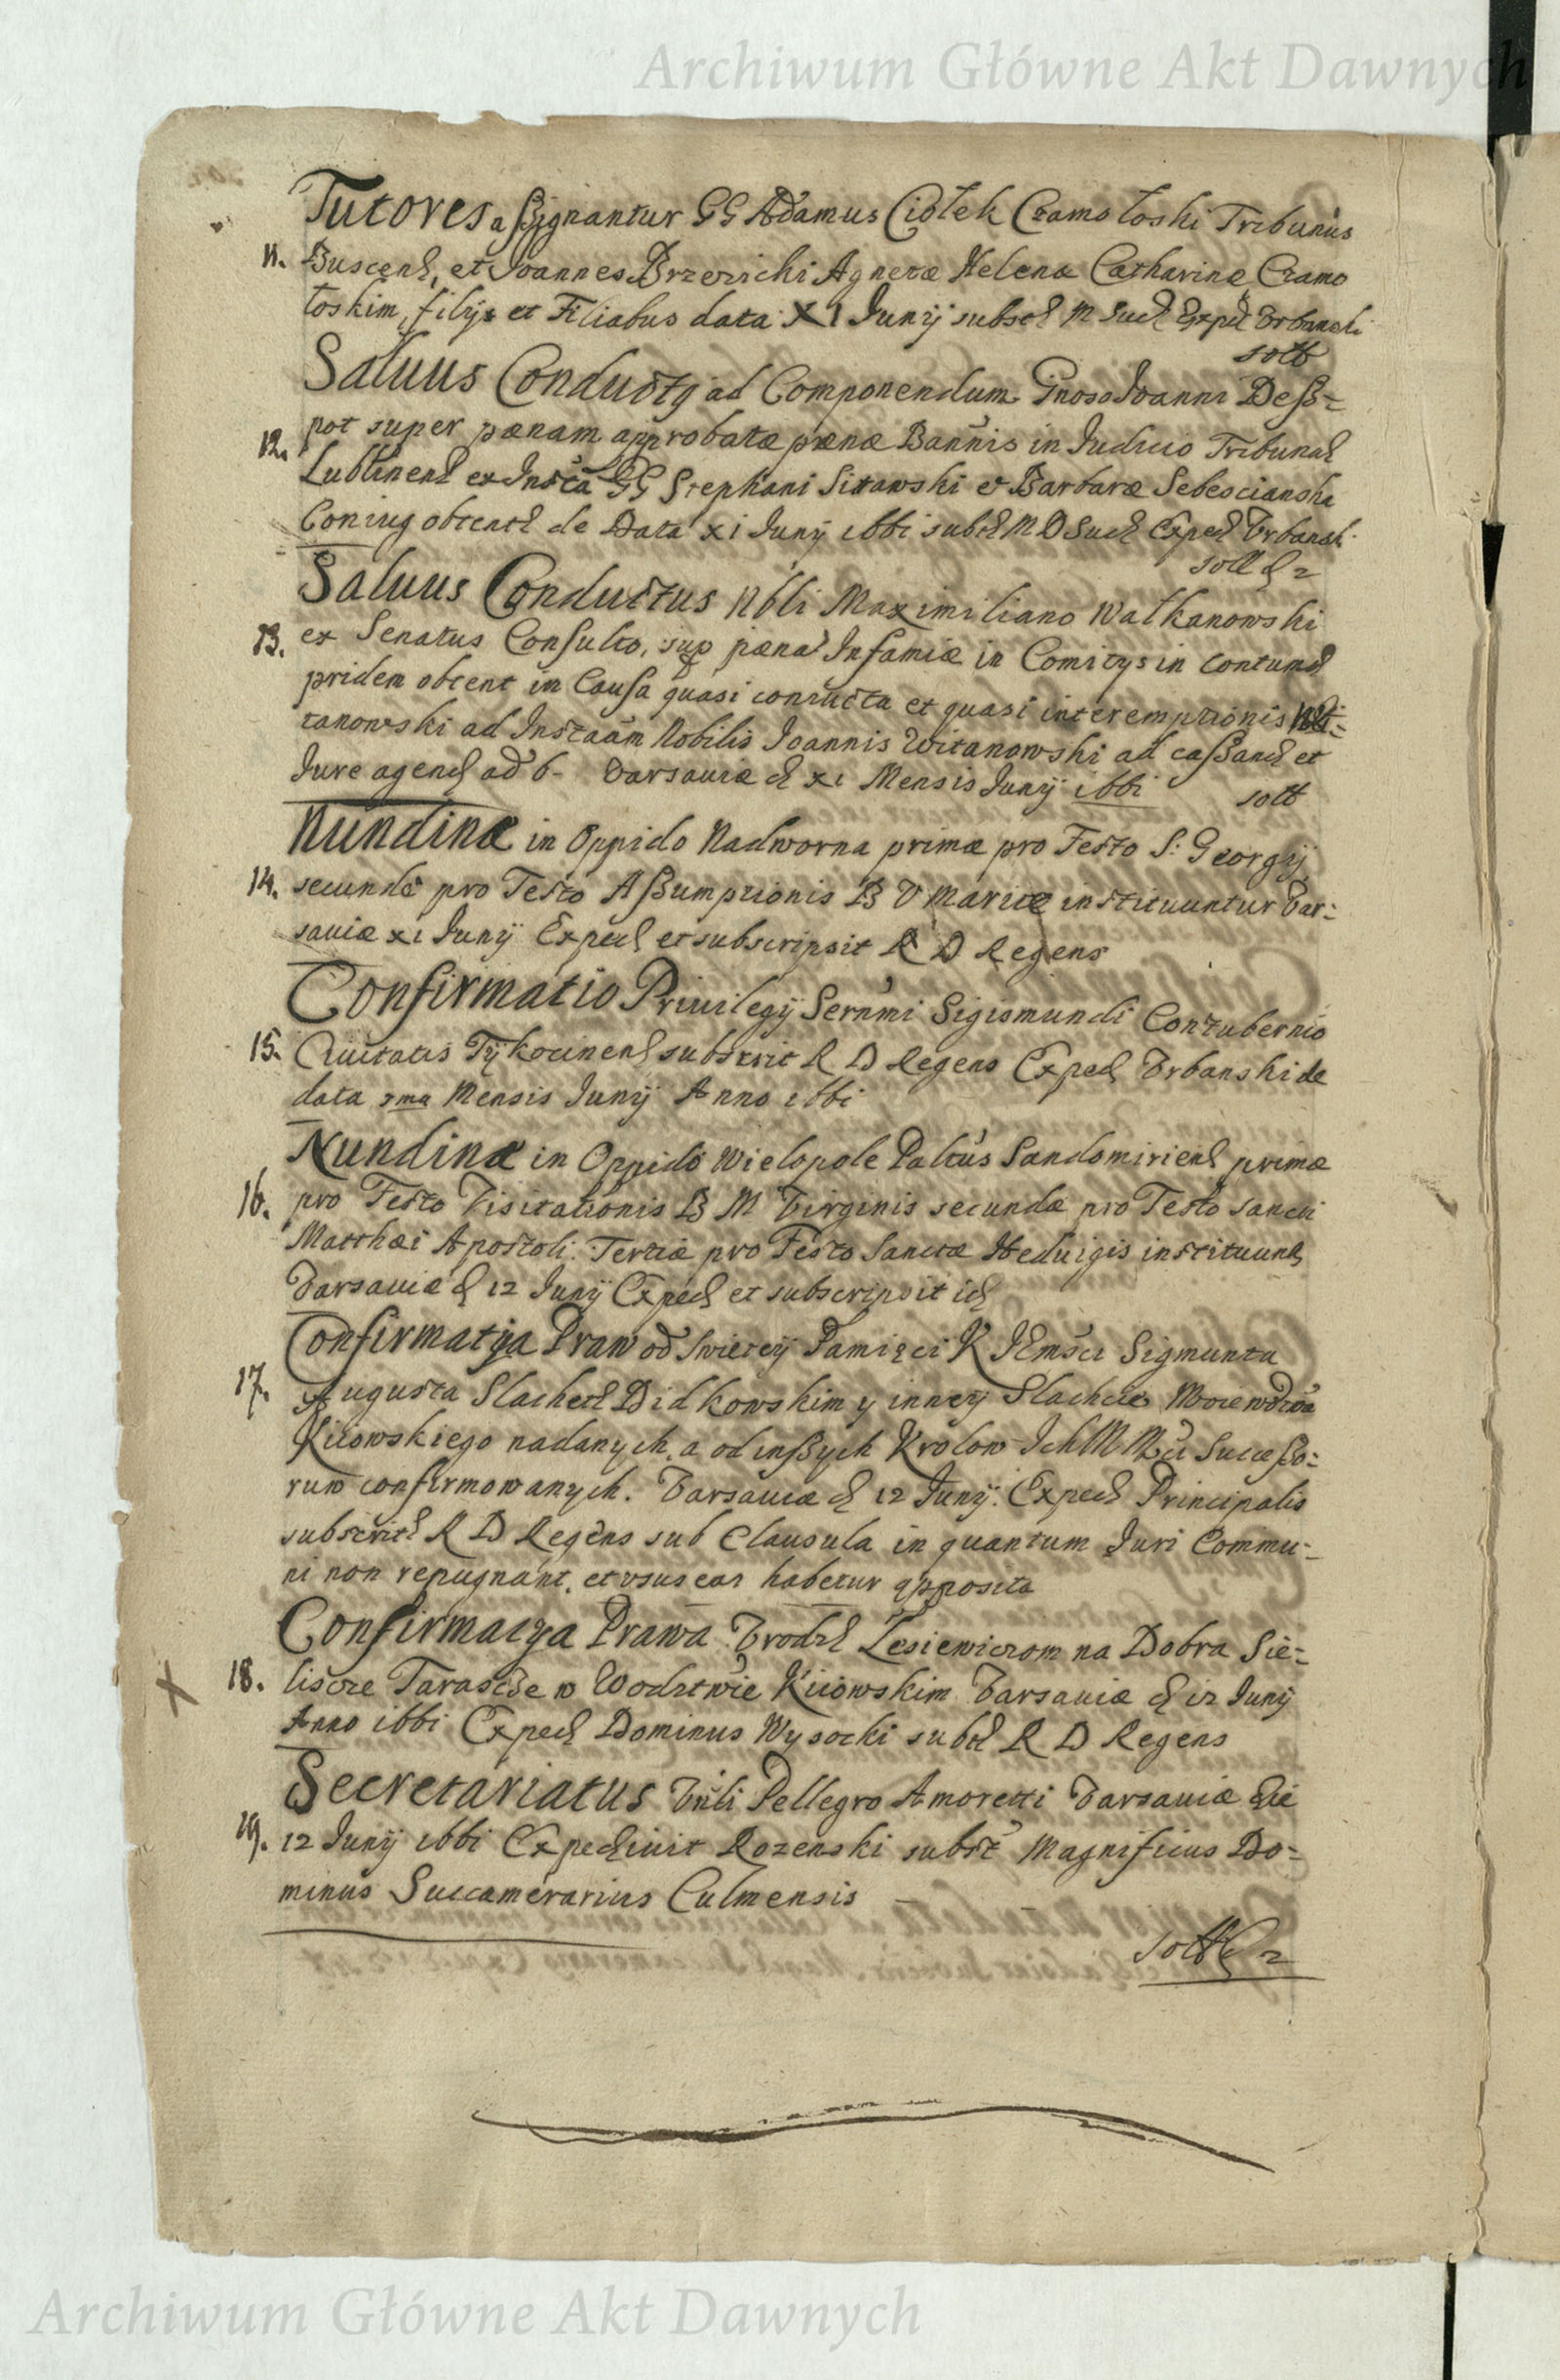 Archiwum Główne Akt Dawnych
Tutores assignantur GG Adamus Ciołek Czamotoski Tribunus
11. Buscens, et Joannes Brzezicki Agnetæ Helenæ Catharinæ Czamo
toskim, filijs et Filiabus data XI Junij subscr M Succ Exped Vrbanski
sollt
Saluus Conductus ad Componendum Gnoso Joanni Deß=
12. pot super pænam approbatæ pænæ Bannis in Judicio Tribunal
Lublinens ex Insta GG Stephani Sitawski et Barbaræ Sebescianska
Coniug obtent de Data XI Junij 1661 subscr M D Succ Exped Vrbansk
sollt 2
Saluus Conductus Nbli Maximiliano Watkanowski
13. ex Senatus Consulto, sup pæna Infamiæ in Comitijs in contum
pridem obtent in Causa quasi conducta et quasi interemptionis
tanowski ad Instaam Nobilis Joannis Witanowski ad cassand et
Jure agend ad 6- Varsauiæ d XI Mensis Junij 1661 sollt
Nundinæ in Oppido Nadworna primæ pro Festo S: Georgij
14. secundæ pro Festo Assumptionis B V Mariæ instituuntur Var=
sauiæ XI Junij Exped et subscripsit R D Regens
Confirmatio Priuilegij Sernmi Sigismundi Contubernio
15. Ciuitatis Tykocinens subscrit R D Regens Exped Vrbanski de
data 3ma Mensis Junij Anno 1661
Nundinæ in Oppido Wielopole Paltus Sandomiriens primæ
16. pro Festo Visitationis B M Virginis secundæ pro Festo sancti
Matthæi Apostoli. Tertiæ pro Festo Sanctæ Heduigis instituunt
Varsauiæ d 12 Junij Exped et subscripsit id
Confirmatya Praw od swietey Pamięci K JEmsci Sigmunta
17. Augusta Slachet Didkowskim y inney Slachcie Woiewodztwa
Kiiowskiego nadanych, a od inßych Krolow Ich M Mci Successo=
rum confirmowanych. Varsauiæ d 12 Junij. Exped Principalis
subscrit R D Regens sub Clausula in quantum Juri Commu=
ni non repugnant, et usus ear habetur apposita
Confirmacya Prawa Vrodz Lesiewiczom na Dobra Sie=
18. liscze Tarascze w Wodztwie Kiiowskim Varsauiæ d 12 Junij
Anno 1661 Exped Dominus Wysocki subscr R D Regens
Secretariatus Vrbli Pellegro Amoretti Varsauiæ Die
19. 12 Junij 1661 Expediuit Rozenski subst Magnificus Do=
minus Succamerarius Culmensis
sollt 2
Archiwum Główne Akt Dawnych